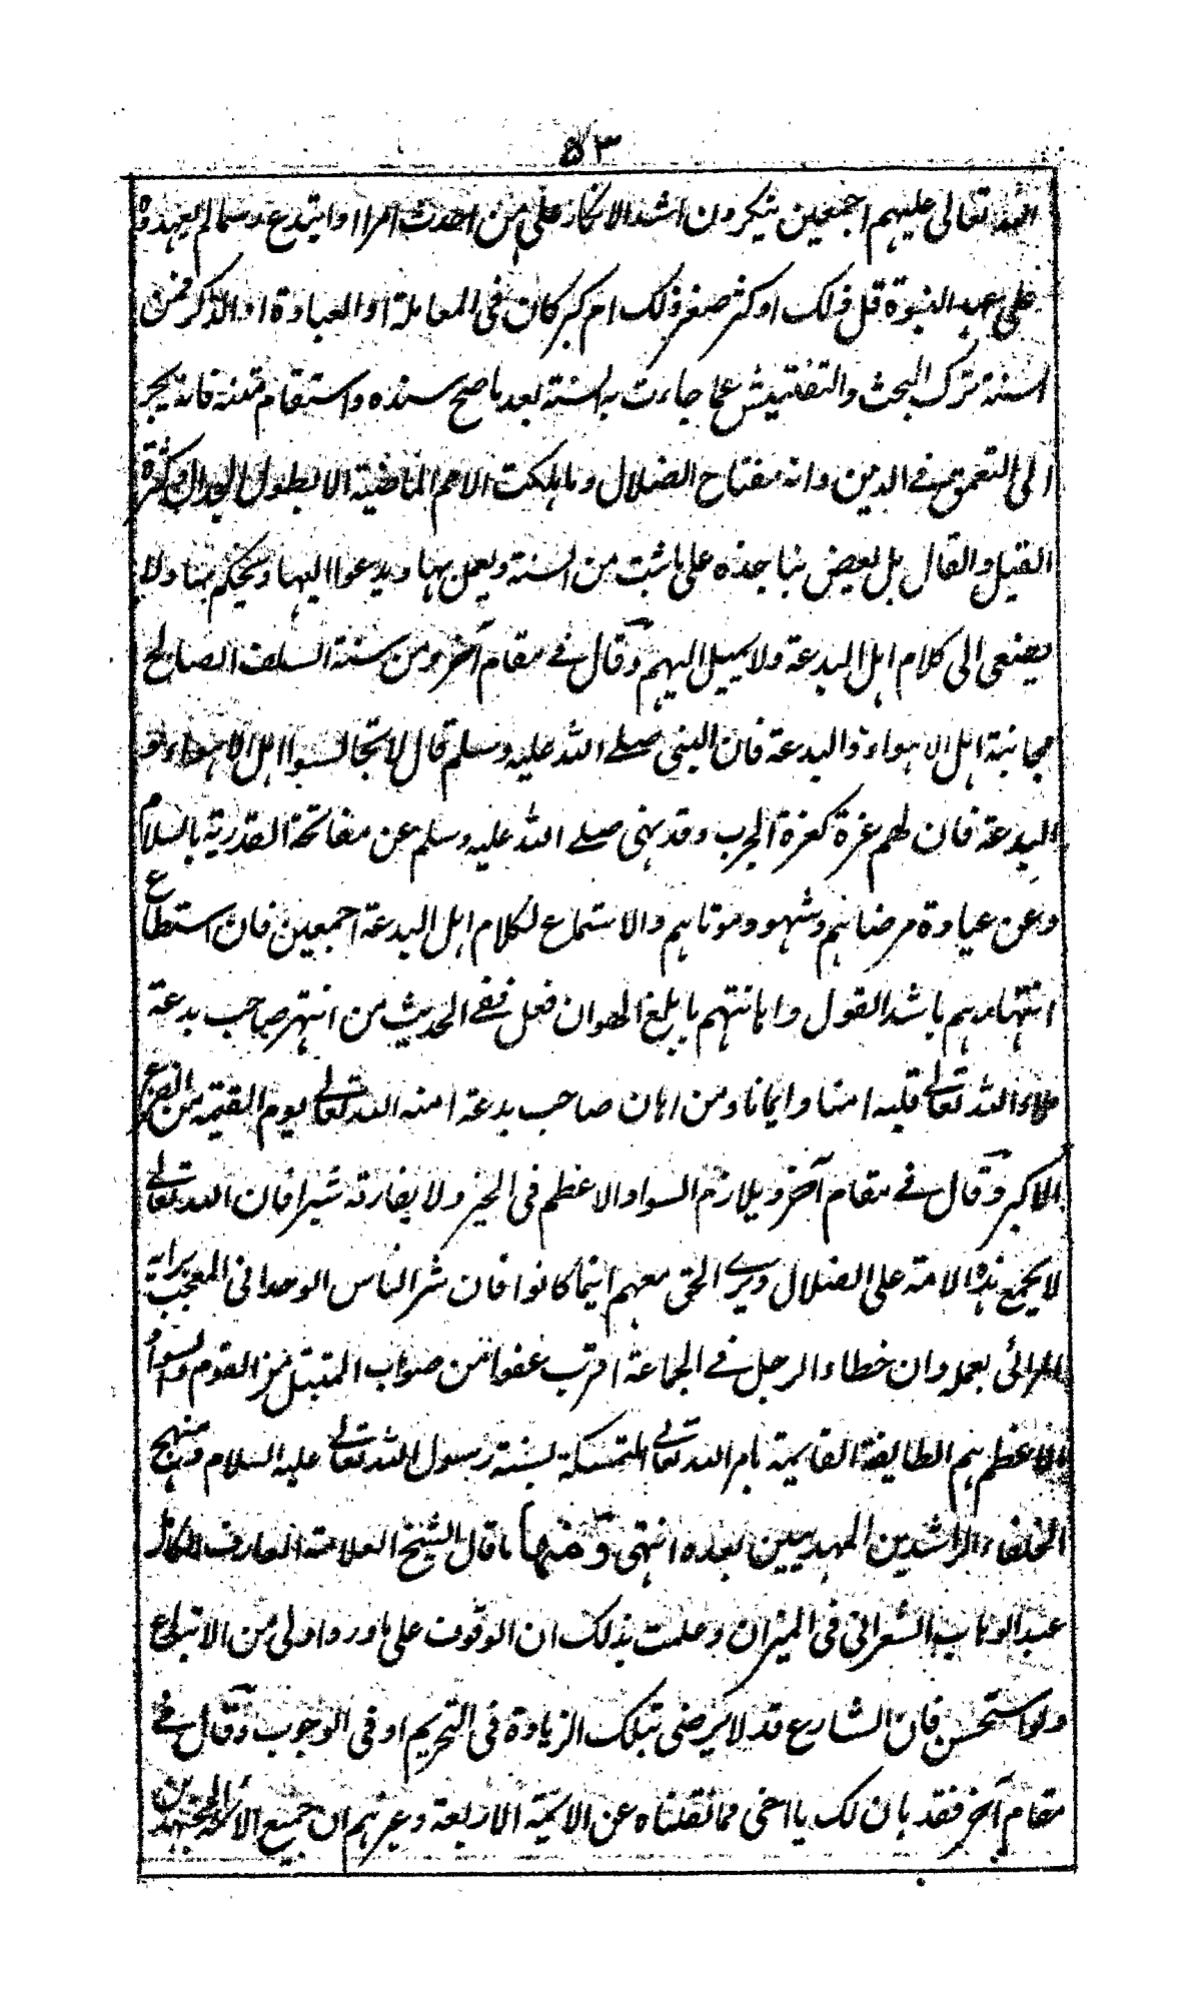 ۵۳
الله تعالى عليهم اجمعين ينكرون اشد الانكار على من احدث امرا او ابتدع رسما لم يعهدوه
على عهد النبوة قل ذلك او كثر صغر ذلك ام كبر كان فى المعاملة او العبادة او الذكر فمن
السنة ترك البحث والتفتيش عما جاءت به السنة بعد ما صح سنده واستقام متنه فانه يجر
الى التعمق فى الدين وانه مفتاح الضلال وما هلكت الامم الماضية الا بطول الجدال وكثرة
القيل والقال بل يعض بنا جذه على ما ثبت من السنة ويعمل بها ويدعوا اليها ويحكم بها ولا
يصغى الى كلام اهل البدعة ولا يميل اليهم وقال فى مقام آخر ومن سنة السلف الصالح
مجانبة اهل الاهواء والبدعة فان النبى صلے الله عليه وسلم قال لا تجالسوا اهل الاهواء و
البدعة فان لهم عرة كعرة الجرب وقد نهى صلے الله عليه وسلم عن مفاتحة القدرية بالسلام
وعن عيادة مرضاهم وشهود موتاهم والاستماع لكلام اهل البدعة اجمعين فان استطاع
انتهارهم باشد القول واهانتهم بابلغ الهوان فعل ففى الحديث من انتهر صاحب بدعة
ملاء الله تعالى قلبه امنا وايمانا ومن اهان صاحب بدعة امنه الله تعالى يوم القيمة من الفزع
الاكبر وقال فى مقام آخر ويلازم السواد الاعظم فى الخير ولا يفارقه شبرا فان الله تعالى
لا يجمع هذه الامة على الضلال ويرے الحق معهم اينما كانوا فان شر الناس الوحدانى المعجب برايه
المرائى بعمله وان خطاء الرجل فى الجماعة اقرب عفوا من صواب المتبتل من القوم والسواد
الاعظم هم الطايفة القايمة بامر الله تعالى المتمسكة بسنة رسول الله تعالى عليه السلام ومنهج
الخلفاء الراشدين المهديين بعده انتهى ومنها ما قال الشيخ العلامة العارف الكامل
عبد الوهاب الشعرانى فى الميزان وعلمت بذلك ان الوقوف على ما ورد اولى من الابتداع
ولو استحسن فان الشارع قد لا يرضى بتلك الزيادة فى التحريم او فى الوجوب وقال فى
مقام آخر فقد بان لك يا اخى مما نقلناه عن الائمة الاربعة وغيرهم ان جميع الائمة المجتهدين